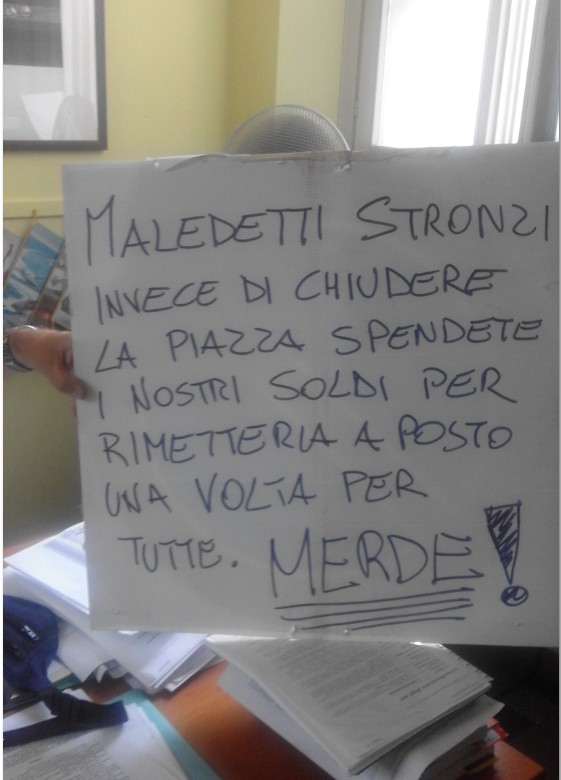 MALEDETTI STRONZI
INVECE DI CHIUDERE
LA PIAZZA SPENDETE
I NOSTRI SOLDI PER
RIMETTERLA A POSTO
UNA VOLTA PER
TUTTE. MERDE!